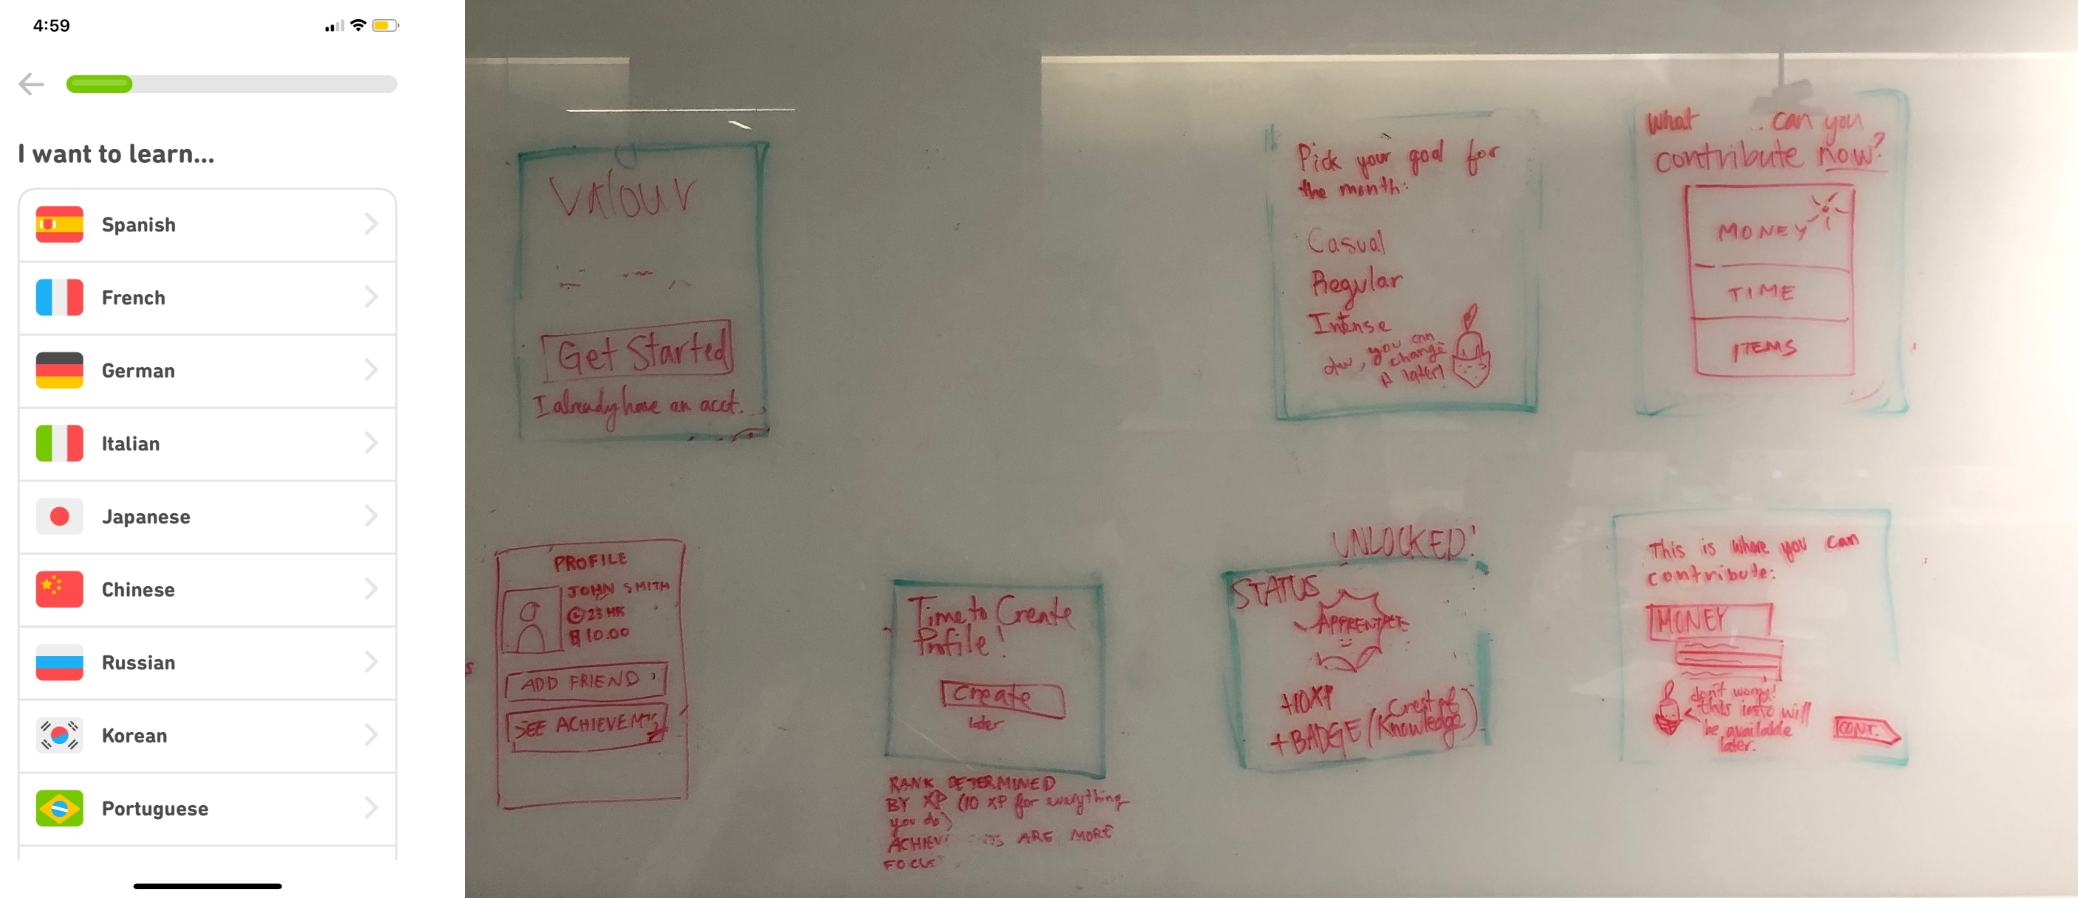 4:59
I want to learn...
Spanish
French
German
Italian
Japanese
Chinese
Russian
Korean
Portuguese
Valour
Get Started
I already have an acct.
Pick your goal for
the month:
Casual
Regular
Intense
you can
change
it later!
What can you
contribute now?
MONEY
TIME
ITEMS
PROFILE
JOHN SMITH
23 HR
$10.00
ADD FRIEND
SEE ACHIEVEMT
Time to Create
Profile!
Create
later
RANK DETERMINED
BY XP (10 XP for everything
you do)
ACHIEV NTS ARE MORE
FOCUS
UNLOCKED!
STATUS
APPRENTICE
+10XP
+BADGE (Crest of
Knowledge)
This is where you can
contribute:
MONEY
don't worry!
this info will
be available
later.
CONT.